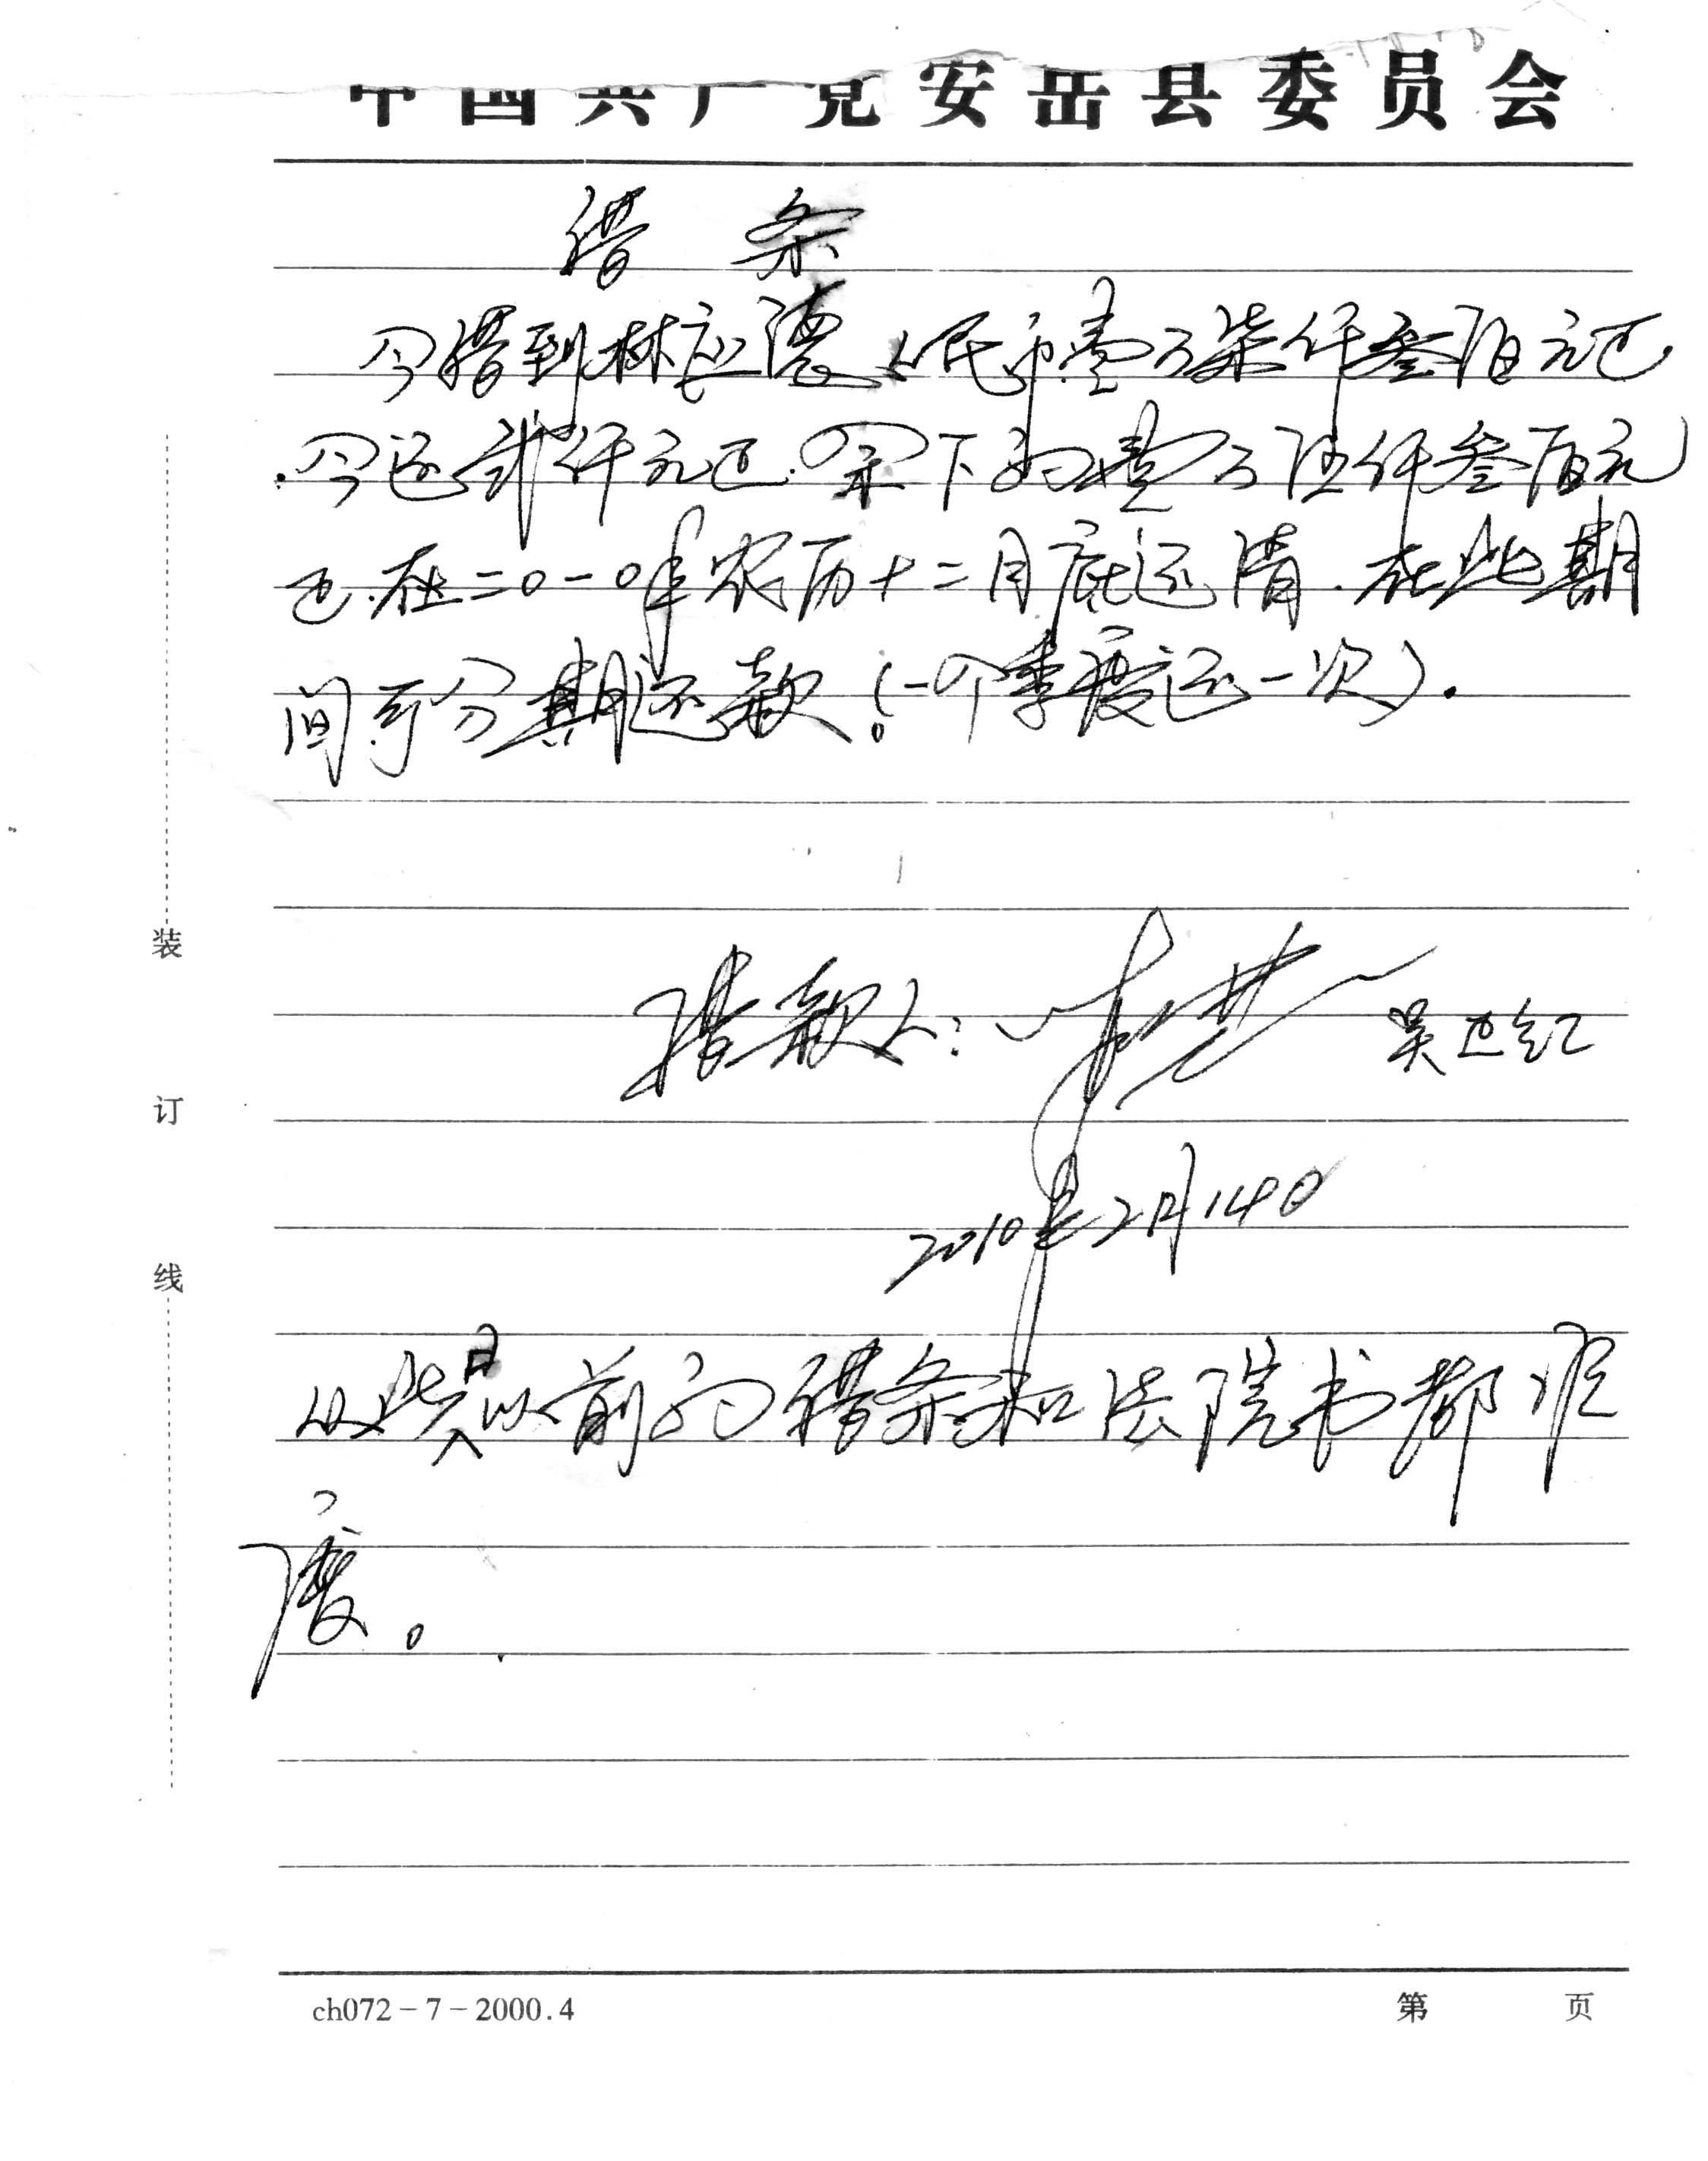 中国共产党安岳县委员会
借 条
今借到林应德人民币壹万柒仟叁佰元正
.今还贰仟元正.余下的壹万伍仟叁佰元
正.在二0一0年农历十二月底还清.在此期
间可分期还款。(一个季度还一次).
借款人: 吴正红
2010年2月14日
从此日以前的借条和法院书都作
废。
装
订
线
ch072-7-2000.4
第 页